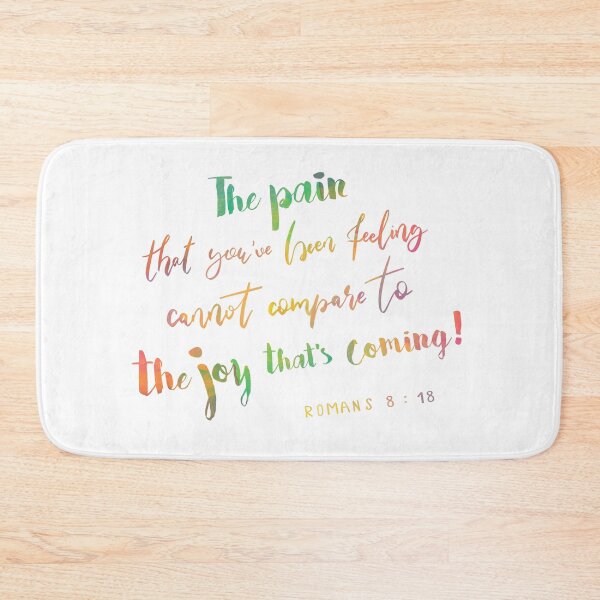 The pain
that you've been feeling
cannot compare to
the joy that's coming!
ROMANS 8 : 18